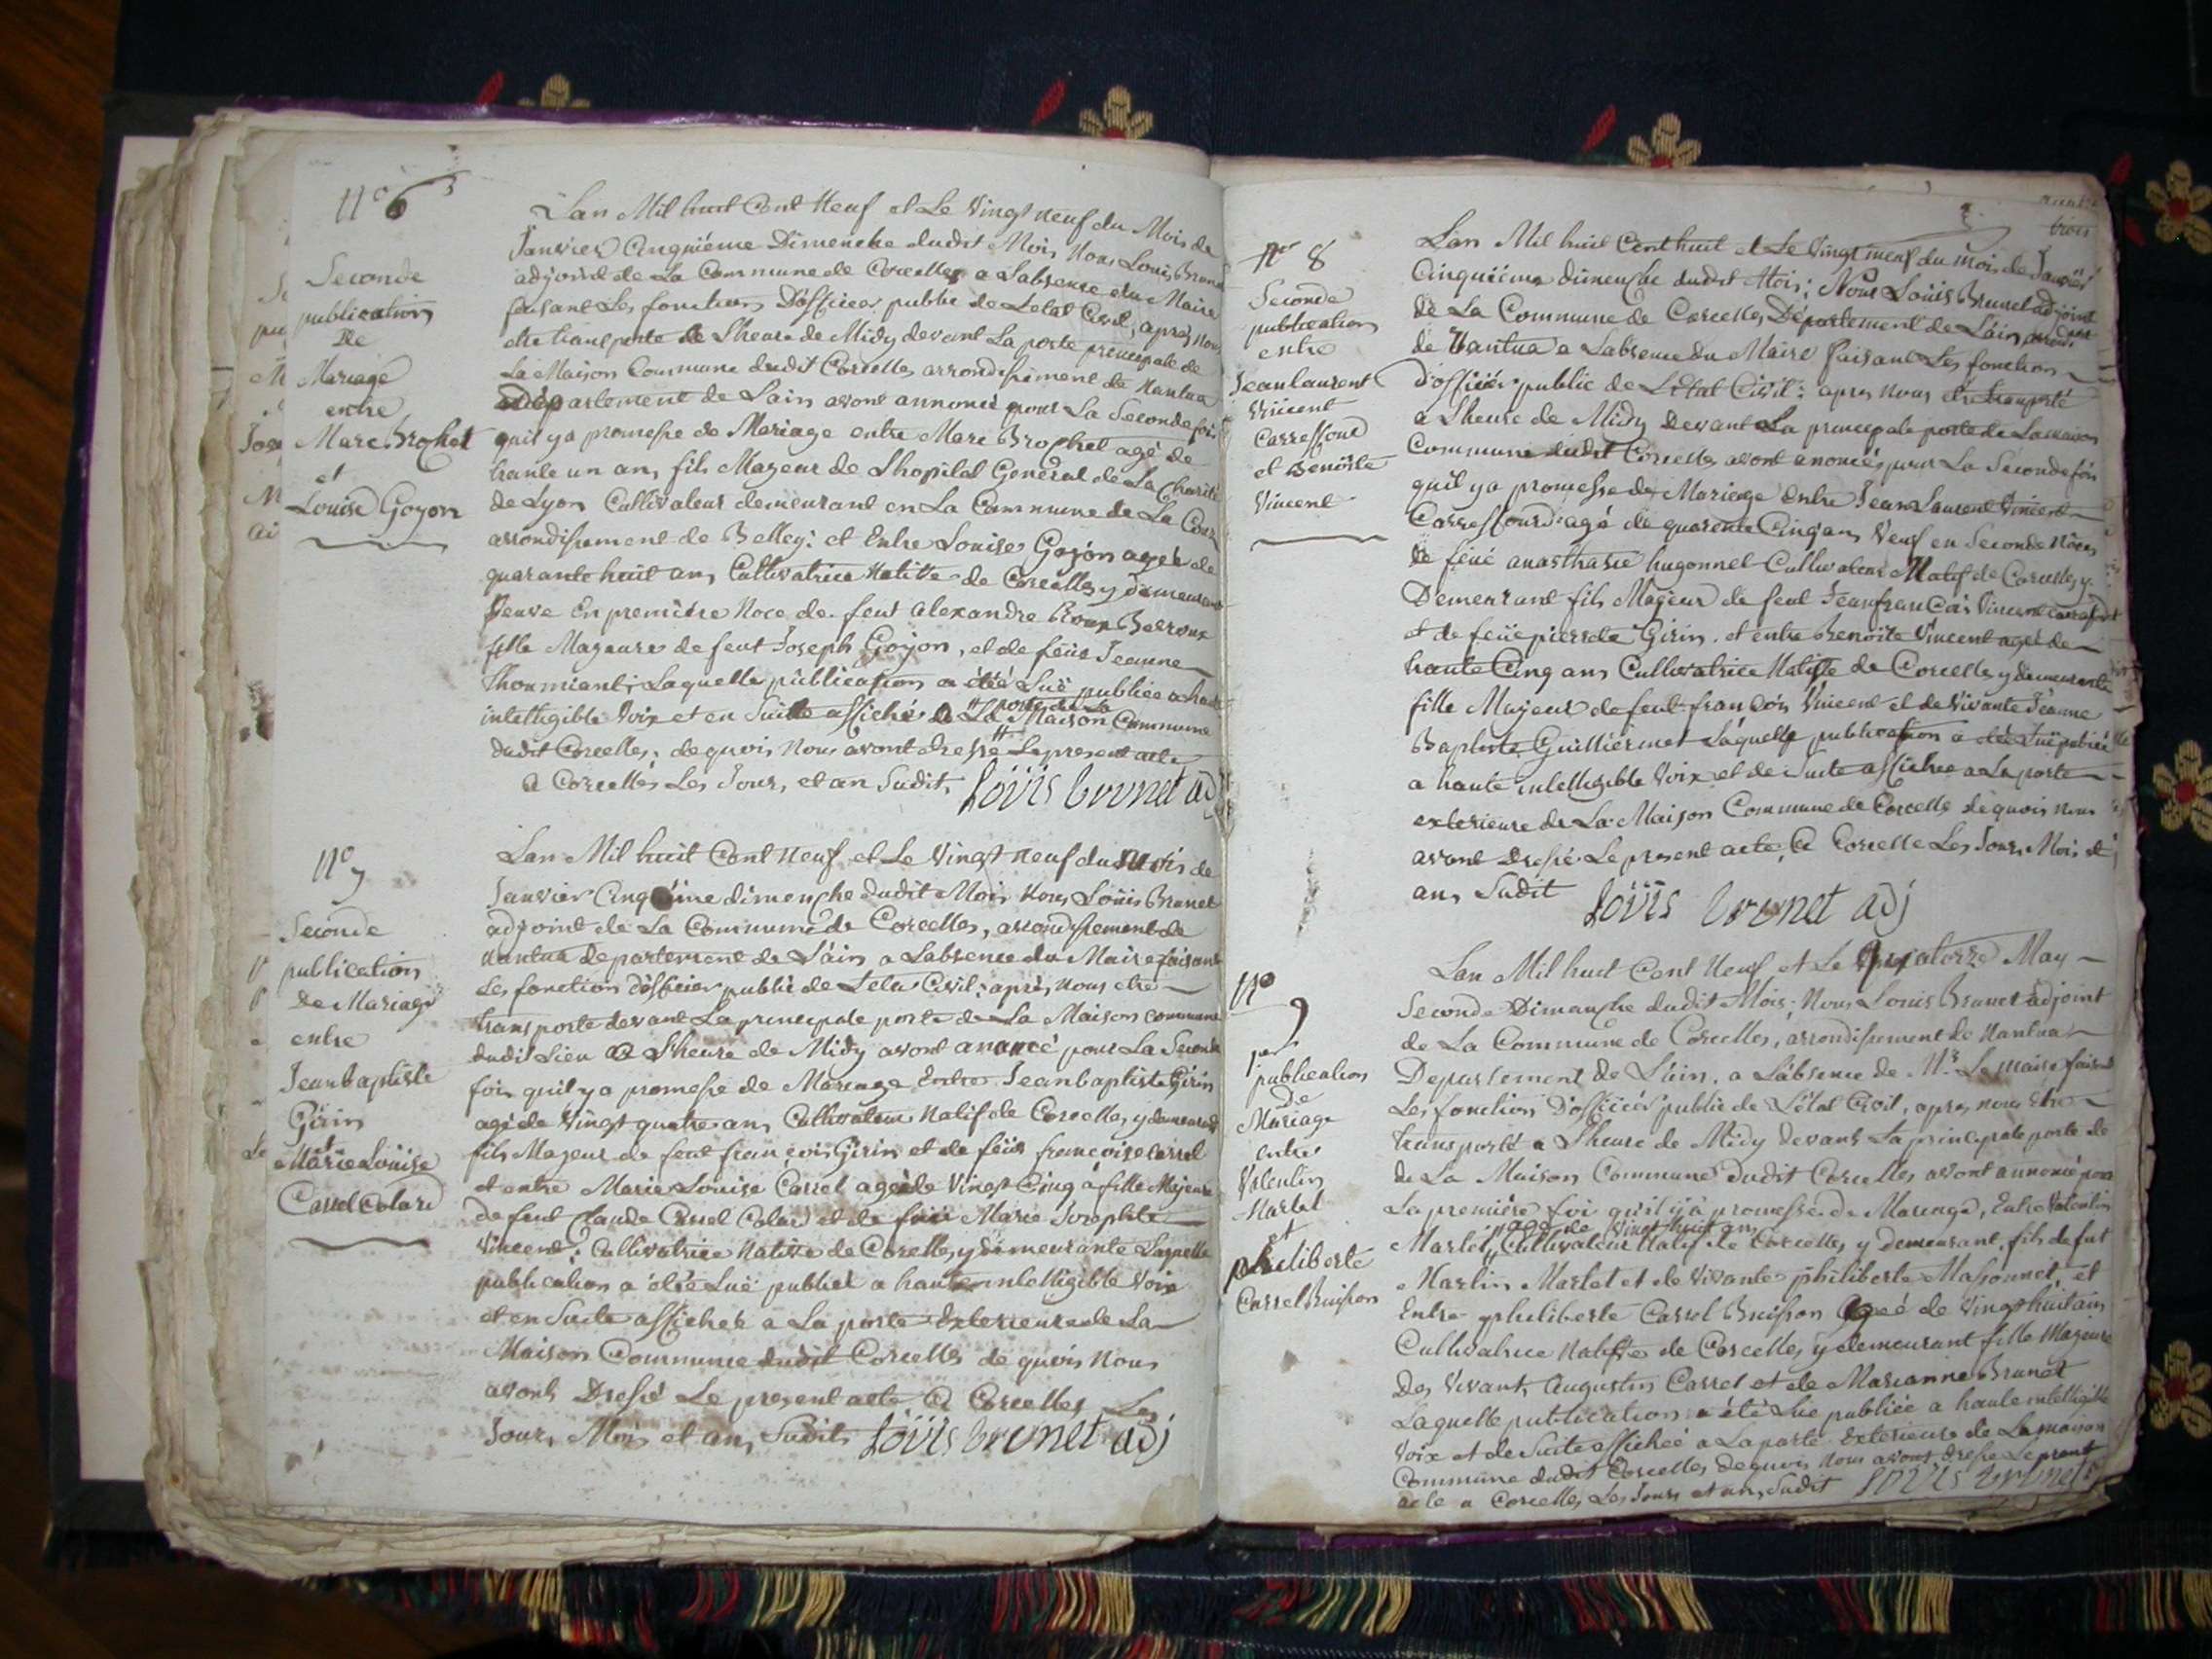 N° 6
Seconde
publication
De
Mariage
entre
Marc Brochet
et
Louise Goyon
Lan Mil huit Cent Neuf et Le Vingt neuf du Mois de
Janvier Cinquiéme Dimenche dudit Mois Nous Louis Brunet
adjoint de La Commune de Corcelles a Labsence du Maire
faisant Les fonctions D'officier public de Letat Civil, apres nous
etre transporte a Lheure de Midy devant La porte principale de
La Maison Commune dudit Corcelles arrondissement de Nantua
Département de Lain avont annoncé pour La Seconde fois
quil ya promesse de Mariage entre Marc Brochet agé de
trante un ans fils Mageur de Lhopital General de La Charité
de Lyon Cultivateur demeurant en La Commune de La
arrondissement de Belley: et Entre Louise Gojon ageé de
quarante huit ans Cultivatrice Native de Corcelles y demeurant
Veuve En première Noce de feut Alexandre Roux Berroux
fille Mageure de feut Joseph Goyon, et de feüe Jeanne
Laquelle publication a étéé Luë publiee a haute
intelligible Voix et en Suitte affiché a La porte de La Maison Commune
dudit Corcelles, dequois Nous avont dressé Lepresent acte
a Corcelles Les Jour, et an Sudit, Loüis brunet adj
N° 7
Seconde
publication
de Mariage
entre
Jeanbaptiste
Girin
et
Marie Loüise
Carrel Colard
Lan Mil huit Cent Neuf et Le Vingt neuf du Mois de
Janvier Cinquiéme dimenche dudit Mois Nous Loüis Brunet
adjoint de La Commune de Corcelles, arrondissement de
Nantua departement de L'ain a Labsence du Maire faisant
Les fonction d'officier public de Leta Civil: après nous etre
transporte devant La principale porte de La Maison commune
dudit Lieu a Lheure de Midy avont anoncé pour La Seconde
fois quil ya promesse de Mariage Entre Jeanbaptiste Girin
agé de Vingt quatre ans Cultivateur Natif de Corcelles y demeurant
fils Mageur de feut françois Girin et de feüe françoise Carrel
et entre Marie Louise Carrel ageé de Vingt Cinq a fille Majeure
de feut Claude Carrel Colard et de feüe Marie Josephte
Vincent; Cultivatrice Native de Corcelles y demeurante Laquelle
publication a étée Luë publiet a haute intelligible Voix
et en Suite affichee a La porte Exterieure de La
Maison Commune dudit Corcelles de quois Nous
avont Dressé Le present acte A Corcelles Les
Jour, Mois et an, Sudit Loüis brunet adj
trois
N° 8
Seconde
publication
entre
Jean laurent
Vincent
Carreffourd
et Benoîte
Vincent
Lan Mil huit Cent huit et Le Vingt neuf du mois de Janvier
Cinquiéme dimenche dudit Mois; Nous Loüis Brunet adjoint
de La Commune de Corcelles, Département de Lain
de Nantua a Labsence du Maire faisant Les fonction
d'officiér public de L'Etat Civil: apres Nous étre transporté
a Lheure de Midy Devant La principale porte de La maison
Commune dudit Corcelles avont anoncés pour La Seconde fois
quil ya promesse de Mariage Entre Jean Laurent Vincent
Carreffourd agé de quarente Cinq ans Veuf en Seconde Nôces
de feüe anasthasie hugonnet Cultivateur Natif de Corcelles y
Demeurant fils Mageur de feut Jeanfrançois Vincent
et de feüe pierrete Girin. et entre Benoîte Vincent ageé de
trante Cinq ans Cultivatrice Native de Corcelles y demeurante
fille Majeur de feut françois Vincent et de Vivante Jeanne
Baptiste Guilliermet Laquelle publication a été Luë publiée
a haute intelligible Voix et de Suite affichee a La porte
exterieure de La Maison Commune de Corcelle de quois Nous
avont Dressé Le present acte, A Corcelle Les Jour, Mois et
an, Sudit Loüis brunet adj
N° 9
per
publication
De
Mariage
entre
Valentin
Marlet
et
pheliberte
Carrel Buisson
Lan Mil huit Cent Neuf et Le quatorze May
Seconde Dimanche dudit Mois; Nous Louis Brunet adjoint
de La Commune de Corcelles, arrondissement de Nantua
Departement de L'ain. a Labsence de Mr Le maire faisant
Les fonction D'officiér public de L'état Civil, apres nous étre
transporté a Lheure de Midy Devant La principale porte de
de La Maison Commune dudit Corcelles avont annoncé pour
La première foi quil y a promesse de Mariage, Entre Valentin
Marlet agé de Vingt huit ans Cultivateur Natif de Corcelles y demeurant, fils de fut
Martin Marlet et de Vivante philiberte Massonnet, et
Entre pheliberte Carrel Buisson ageé de Vingt huit ans
Cultivatrice Native de Corcelles y demeurant fille Mageure
Des Vivant, Augustin Carrel et de Marianne Brunet
Laquelle publication a été Lue publiée a haute intelligible
Voix et de Suite affichée a La porte Exterieure de La maison
Commune dudit Corcelles Dequois Nous avont dressé Le present
acte a Corcelles, Les Jour, et an, Sudit Loüis brunet